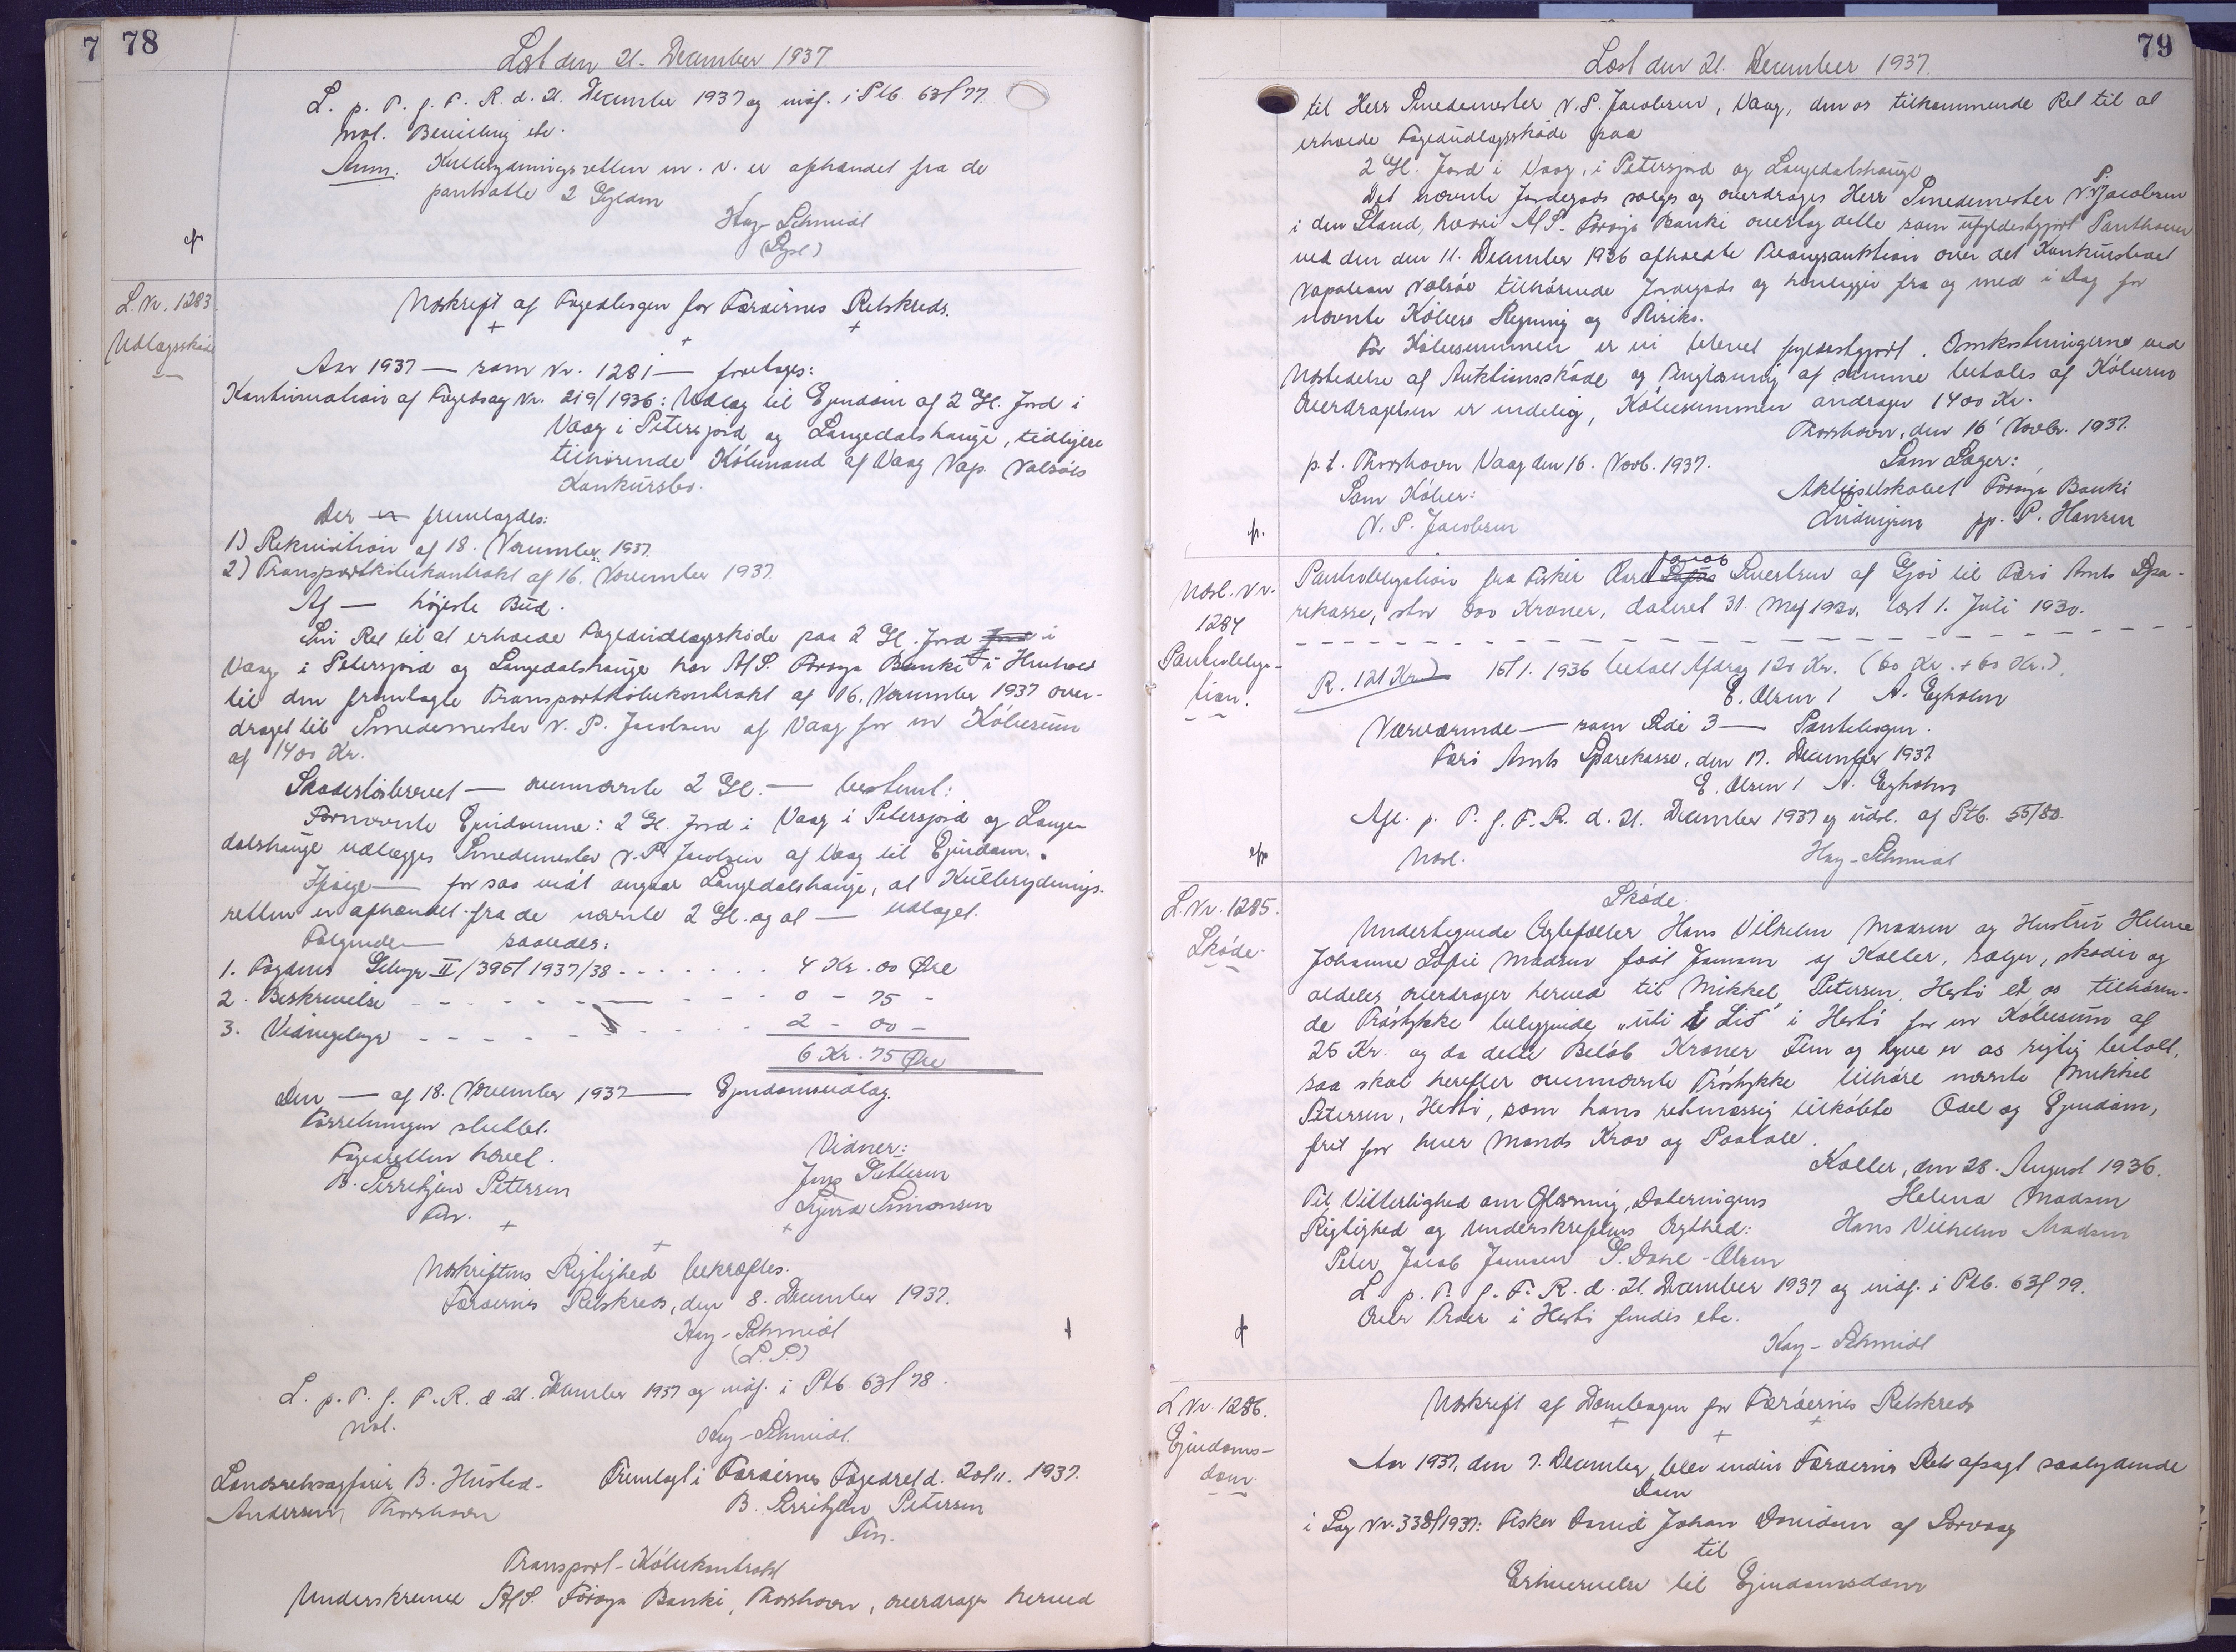 7 78
Læst den 21. December 1937.
L. p. T. f. F. R. d. 21. December 1937 og indf. i Ptb 63/77.
Nol. Bevilling etc.
Anm. Kulbrydningsretten m. v. er afhændet fra de
pantsatte 2 Gylden
Kay-Schmidt
(Dpt)
L. Nr. 1283.
Udlægsskøde
Udskrift af Fogedbogen for Færøernes Retskreds.
Aar 1937 — som Nr. 1281 — foretoges:
Kontinuation af Fogedsag Nr. 219/1936: Udlæg til Ejendom af 2 Gl. Jord i
Vaag i Petersjord og Langedalshauge, tidligere
tilhørende Købmand af Vaag Nap. Nolsøes
Konkursbo.
Der er fremlagdes:
1) Rekvisition af 18. November 1937.
2) Transportkøbekontrakt af 16. November 1937.
Af — højeste Bud.
Sin Ret til at erholde Fogedudlægsskøde paa 2 Gl. Jord i
Vaag i Petersjord og Langedalshauge har A/S. Føroya Banki i Henhold
til den fremlagte Transportkøbekontrakt af 16. November 1937 over-
draget til Smedemester N. P. Jacobsen af Vaag for en Købesum
af 1400 Kr.
Skadesløsbrevet — ovennævnte 2 Gl. — bestemt:
Fornævnte Ejendomme: 2 Gl. Jord i Vaag i Petersjord og Lange-
dalshauge udlægges Smedemester N. P. Jacobsen af Vaag til Ejendom.
Ifølge — for saa vidt angaar Langedalshauge, at Kulbrydnings-
retten er afhændet fra de nævnte 2 Gl. og at — udlaget.
Følgende — saaledes:
1. Fogdens Gebyr II/395/1937/38 - - - - - - - 4 Kr. 00 Øre
2. Beskrivelse - - - - - - - - - 0 - 75 -
3. Vidnegebyr - - - - - - - - - 2 - 00 -
6 Kr. 75 Øre
Den — af 18. November 1937 — Ejendomsudlæg.
Forretningen sluttet.
Fogedretten hævet. Vidner:
B. Serritzlew Petersen Jens Pettersen
Fm. Sjurd Simonsen
Udskriftens Rigtighed bekræftes.
Færøernes Retskreds, den 8. December 1937.
Kay-Schmidt
(L.S.)
L. p. T. f. F. R. d. 21. December 1937 og indf. i Ptb 63/78.
Nol. Kay-Schmidt.
Landsretssagfører B. Husted- Fremlagt i Færøernes Fogedret d. 20/11. 1937.
Andersen, Thorshavn B. Serritzlew Petersen
Fm.
Transport-Købekontrakt
Underskrevne A/S. Føroya Banki, Thorshavn, overdrager herved
79
Læst den 21. December 1937.
til Herr Smedemester N. P. Jacobsen, Vaag, den os tilkommende Ret til at
erholde Fogedudlægsskøde paa
2 Gl. Jord i Vaag, i Petersjord og Langedalshauge
Det nævnte Jordegods sælges og overdrages Herr Smedemester N. P. Jacobsen
i den Stand, hvori A/S. Føroya Banki overtog dette som ufyldestgjort Panthaver
ved den den 11. December 1936 afholdte Tvangsauktion over det Konkursboet
Napoleon Nolsøe tilhørende Jordegods og henligger fra og med i Dag for
nævnte Købers Regning og Risiko.
For Købesummen er vi blevet fyldestgjort. Omkostningerne ved
Udstedelse af Auktionsskøde og Tinglæsning af samme betales af Køberen
Overdragelsen er endelig, Købesummen andrager 1400 Kr.
Thorshavn, den 16 Novbr. 1937.
p. t. Thorshavn Vaag den 16. Novb. 1937. Som Sælger:
Som Køber: Aktieselskabet Føroya Banki
N. P. Jacobsen Ludvigsen pp. P. Hansen
Udsl. Nr.
1284
Pantobliga-
tion.
Pantobligation fra Fisker Karl Jacob Sivertsen af Gjov til Færø Amts Spa-
rekasse, stor 800 Kroner, dateret 31. Maj 1930, læst 1. Juli 1930.
R. 121 Kr. 15/1. 1936 betalt Afdrag 120 Kr. (60 Kr. + 60 Kr.).
E. Olsen / A. Egholm
Nærværende — som Side 3 — Pantebogen.
Færø Amts Sparekasse, den 17. December 1937.
E. Olsen / A. Egholm
Afl. p. T. f. F. R. d. 21. December 1937 og udsl. af Ptb. 55/80.
Nol. Kay-Schmidt
L. Nr. 1285.
Skøde.
Skøde.
Undertegnede Ægtefæller Hans Vilhelm Madsen og Hustru Helene
Johanne Sofie Madsen født Joensen af Kollef., sælger, skøder og
aldeles overdrager herved til Mikkel Petersen, Hesti et os tilhøren-
de Trøstykke beliggende "uti í Líð" i Hesti for en Købesum af
25 Kr. og da dette Beløb Kroner Fem og tyve er os rigtig betalt,
saa skal herefter ovennævnte Trøstykke tilhøre nævnte Mikkel
Petersen, Hesti, som hans retmæssig tilkøbte Odel og Ejendom,
frit for hver Mands Krav og Paatale.
Kollef., den 28. August 1936.
Til Vitterlighed om Oplæsning, Dateringens Helena Madsen
Rigtighed og Underskriftens Ægthed: Hans Vilhelm Madsen
Peter Jacob Joensen S. Dahl-Olsen
L. p. T. f. F. R. d. 21. December 1937 og indf. i Ptb. 63/79.
Over Trøer i Hesti findes etc.
Kay-Schmidt
L. Nr. 1286.
Ejendoms-
dom.
Udskrift af Dombogen for Færøernes Retskreds
Aar 1937, den 7. December blev inden Færøernes Ret afsagt saalydende
Dom
i Sag Nr. 338/1937: Fisker Daniel Johan Danielsen af Sørvaag
til
Erhvervelse til Ejendomsdom